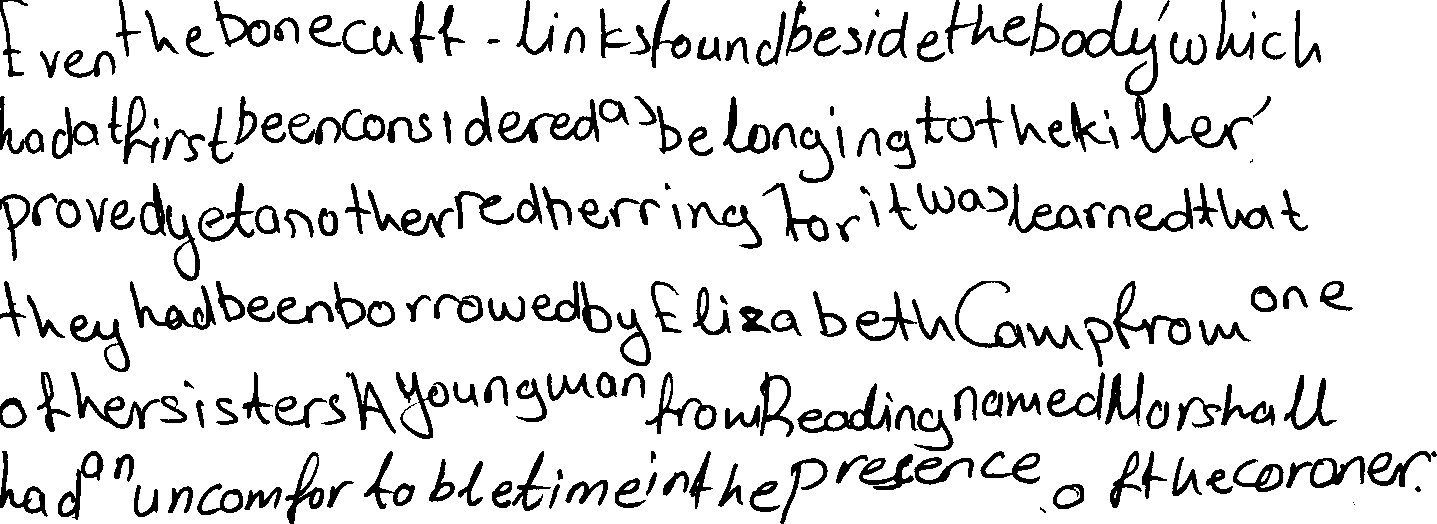 Even the bone cuff-links found beside the body, which
had at first been considered as belonging to the killer,
proved yet another red herring for it was learned that
they had been borrowed by Elizabeth Camp from one
of her sisters. A young man from Reading named Marshall
had an uncomfortable time in the presence of the coroner.